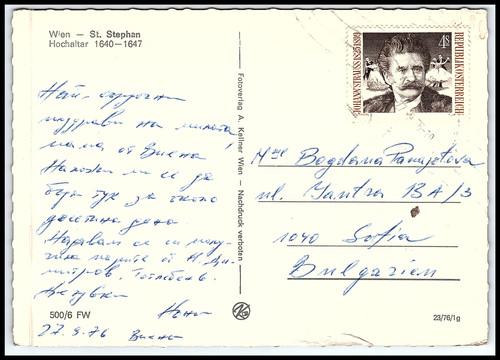 Wien – St. Stephan
Hochaltar 1640–1647
Най-сърдечни
поздрави на милата
мама от Виена!
Наложи ми се да
бъда тук за около
десетина дена.
Надявам се си получила
парите от Н. Димитров.
Целувки
27.9.76 Виена
500/6 FW
Fotoverlag A. Kellner Wien – Nachdruck verboten
4S
REPUBLIK ÖSTERREICH
JOHANN STRAUSS 1825-1899
Mme Bogdana Panajotova
ul. Jantra 13A/3
1040 Sofia
Bulgarien
23/76/1g